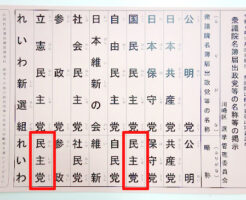 衆議院名簿届出政党等の名称等の掲示
川崎区選挙管理委員会
衆議院名簿届出政党等の名称 略称
公明党 公明
日本共産党 共産党
日本保守党 保守党
国民民主党 民主党
自由民主党 自民党
日本維新の会 維新
社会民主党 社民党
参政党 参政
立憲民主党 民主党
れいわ新選組 れいわ